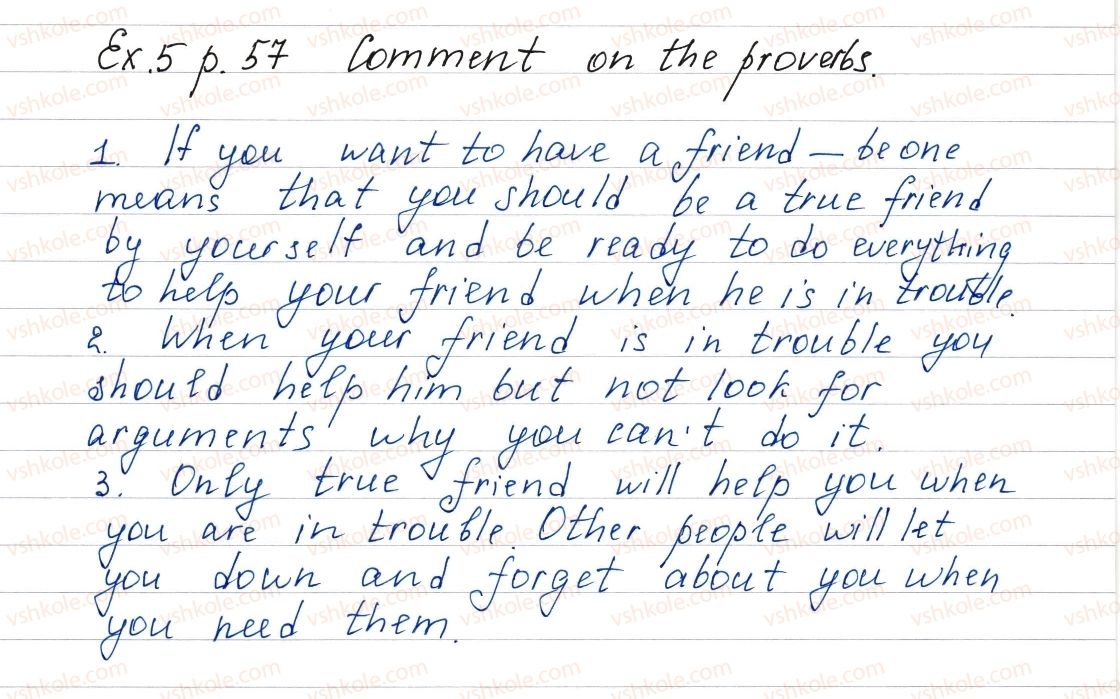 Ex.5 p.57 Comment on the proverbs.
1. If you want to have a friend – be one
means that you should be a true friend
by yourself and be ready to do everything
to help your friend when he is in trouble.
2. When your friend is in trouble you
should help him but not look for
arguments why you can't do it.
3. Only true friend will help you when
you are in trouble. Other people will let
you down and forget about you when
you need them.